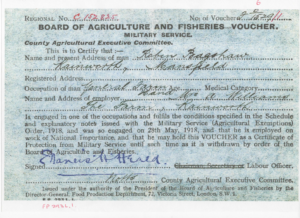 REGIONAL No. No. of Voucher
BOARD OF AGRICULTURE AND FISHERIES VOUCHER.
MILITARY SERVICE.
County Agricultural Executive Committee.
This is to Certify that:—
Name and present Address of man John Bagshaw
Rainworth, Mansfield
Registered Address
Occupation of man General Farm Hand Medical Category
Name and Address of employer Williams
The Farm, Rainworth
is engaged in one of the occupations and fulfils the conditions specified in the Schedule
and explanatory notes issued with the Military Service (Agricultural) (Exceptional)
Order, 1918, and was so engaged on 25th May, 1918, and that he is employed on
work of National Importance, and that he may hold this VOUCHER as a Certificate of
Protection from Military Service until such time as it is withdrawn by order of the
Board of Agriculture and Fisheries.
Signed Labour Officer.
Notts County Agricultural Executive Committee.
Issued under the authority of the President of the Board of Agriculture and Fisheries by the
Director-General, Food Production Department, 72, Victoria Street, London, S.W.1.